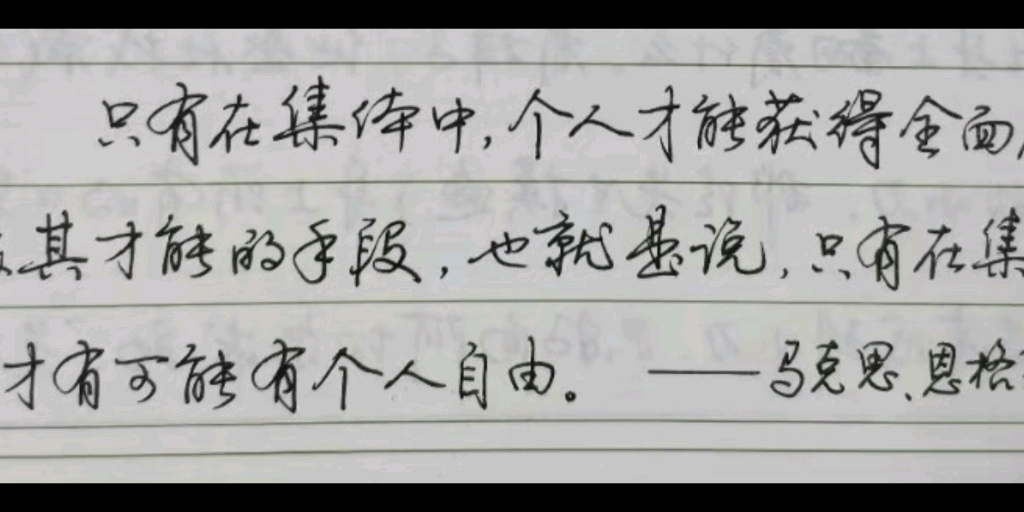 只有在集体中,个人才能获得全面
其才能的手段,也就是说,只有在集
才有可能有个人自由。——马克思、恩格